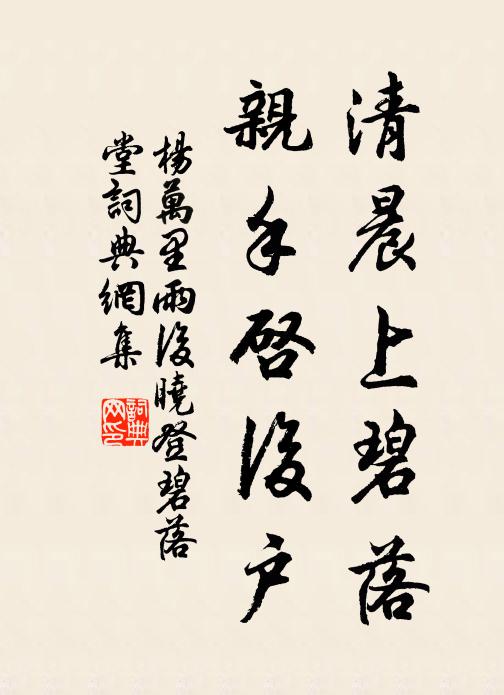 清晨上碧落
親手啓後户
楊萬里雨後曉登碧落
堂詞典網集
詞典
网印